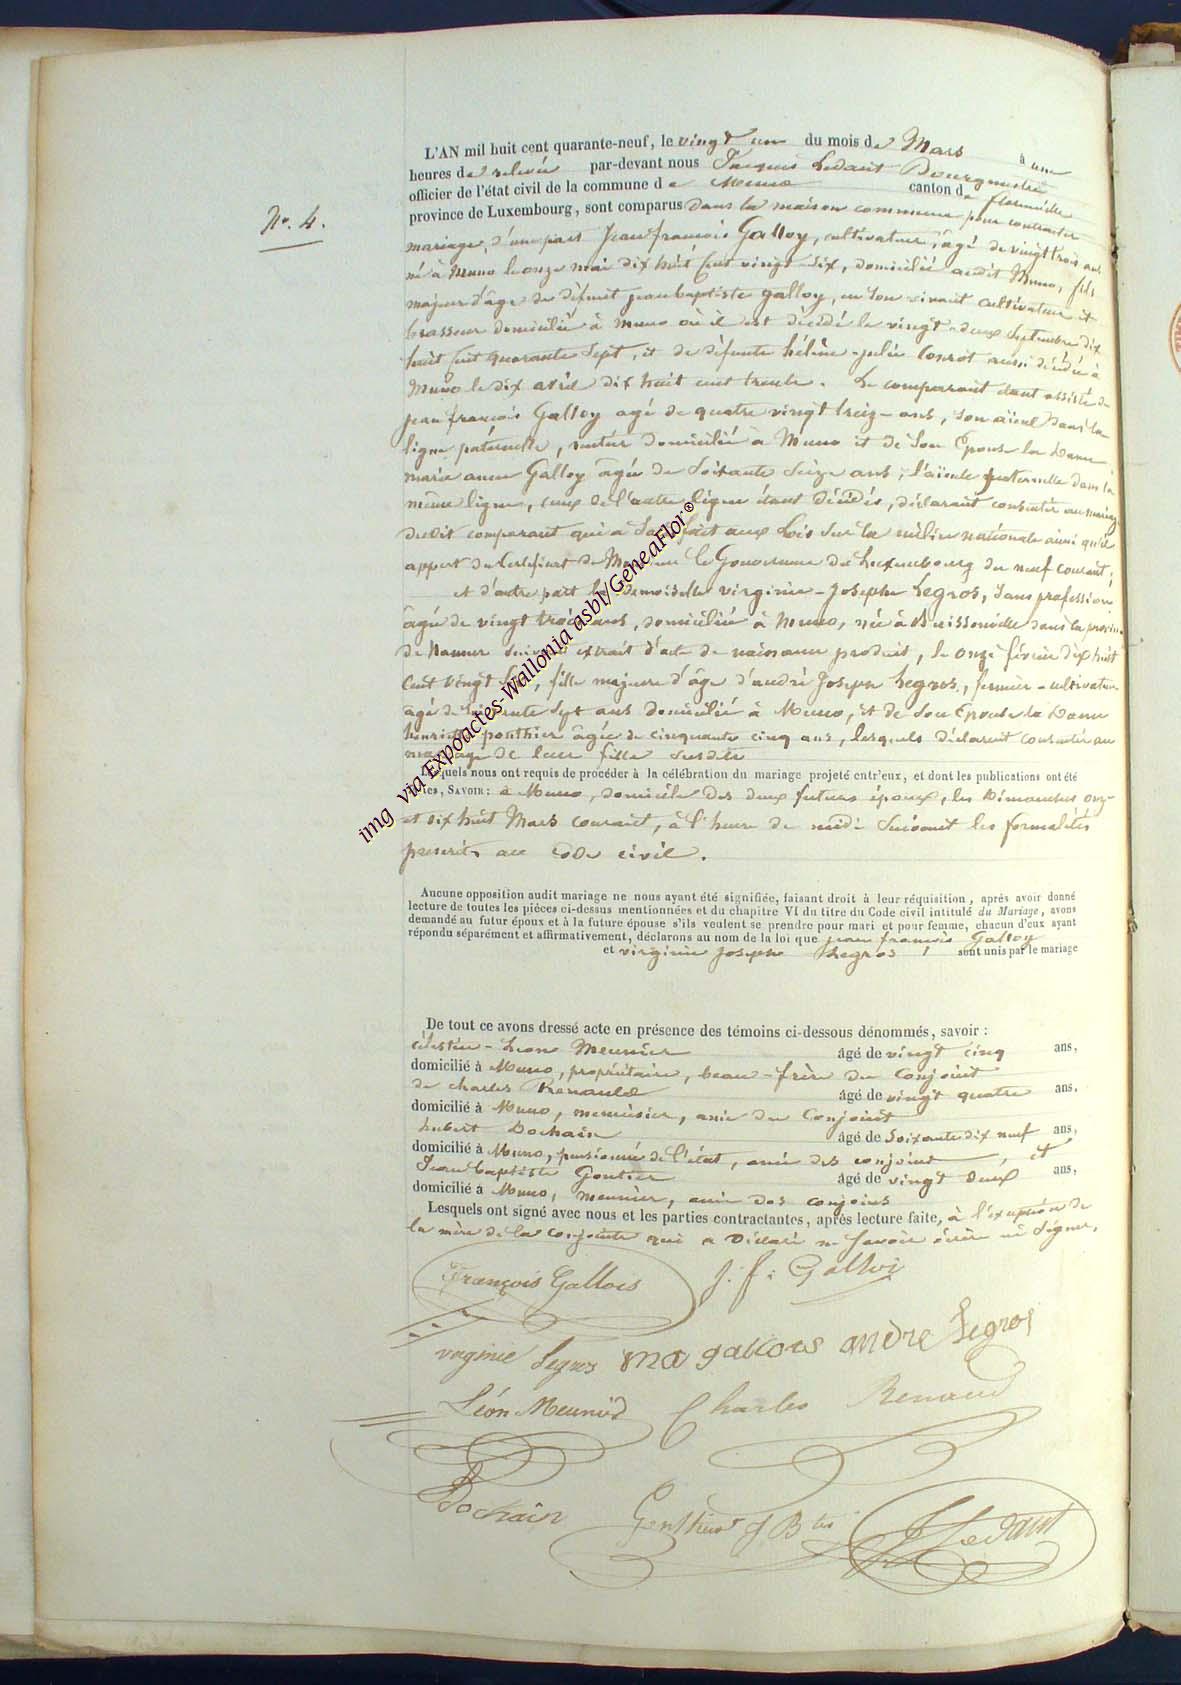 L'AN mil huit cent quarante-neuf, le vingt un du mois de Mars à une
heures de relevée par-devant nous Jacques Ledant Bourgmestre
officier de l'état civil de la commune de Muno canton de florenville
province de Luxembourg, sont comparus dans la maison commune pour contracter
No. 4.
mariage, d'une part Jean françois Galloy, cultivateur, âgé de vingt trois ans
né à Muno le onze mai dix huit Cent vingt-Six, domicilié audit Muno, fils
majeur d'âge de défunt jean baptiste galloy, en Son vivant cultivateur et
brasseur domicilié à Muno où il est décédé le vingt-deux Septembre dix
huit Cent quarante Sept, et de défunte hélène-julie Conrot aussi décédée à
Muno le dix avril dix huit cent trente. Le comparant étant assisté de
jean françois Galloy agé de quatre vingt treize ans, Son aïeul dans la
ligne paternelle, rentier domicilié à Muno et de Son Épouse la Dame
marie anne Galloy âgée de Soixante Seize ans, l'aïeule paternelle dans la
même ligne, ceux de l'autre ligne étant décédés, déclarant consentir au mariage
dudit comparant qui a Satisfait aux Lois Sur la milice nationale ainsi qu'il
appert du Certificat de Monsieur le Gouverneur du Luxembourg du neuf courant;
et d'autre part la Demoiselle virginie-Josephe Legros, Sans profession,
âgée de vingt trois ans, domiciliée à Muno, née à Buissonville dans la province
de Namur Suivant extrait d'acte de naissance produit, le onze février dix huit
Cent vingt Six, fille majeure d'âge d'andré Joseph Legros, fermier-cultivateur
âgé de Soixante Sept ans domicilié à Muno, et de Son Épouse la Dame
henriette ponthier âgée de cinquante cinq ans, lesquels déclarent consentir au
mariage de leur fille Susdite
Lesquels nous ont requis de procéder à la célébration du mariage projeté entr'eux, et dont les publications ont été
faites, SAVOIR: à Muno, domicile des deux futurs époux, les Dimanches onze
et dix huit Mars courant, à l'heure de midi Suivant les formalités
prescrites au Code civil.
Aucune opposition audit mariage ne nous ayant été signifiée, faisant droit à leur réquisition, après avoir donné
lecture de toutes les pièces ci-dessus mentionnées et du chapitre VI du titre du Code civil intitulé du Mariage, avons
demandé au futur époux et à la future épouse s'ils veulent se prendre pour mari et pour femme, chacun d'eux ayant
répondu séparément et affirmativement, déclarons au nom de la loi que jean françois Galloy
et virginie Josephe Legros sont unis par le mariage
De tout ce avons dressé acte en présence des témoins ci-dessous dénommés, savoir :
célestin-Leon Meunier âgé de vingt cinq ans,
domicilié à Muno, propriétaire, beau-frère du Conjoint
de charles Renauld âgé de vingt quatre ans.
domicilié à Muno, menuisier, ami du Conjoint
hubert Dochain âgé de Soixante dix neuf ans,
domicilié à Muno, pensionné de l'état, ami des conjoint, et
Jean baptiste Gontier âgé de vingt deux ans,
domicilié à Muno, meunier, ami des conjoins
Lesquels ont signé avec nous et les parties contractantes, après lecture faite, à l'exception de
la mère de la Conjointe qui a Déclaré ne Savoir écrire ni Signer.
François Gallois J. f: Galloi
virginie Legros ma gallois andre Legros
Léon Meunier Charles Renaud
Dochain Gonthier J Bte J Ledant
img via Expoactes-Wallonia asbl/GeneaFlor®